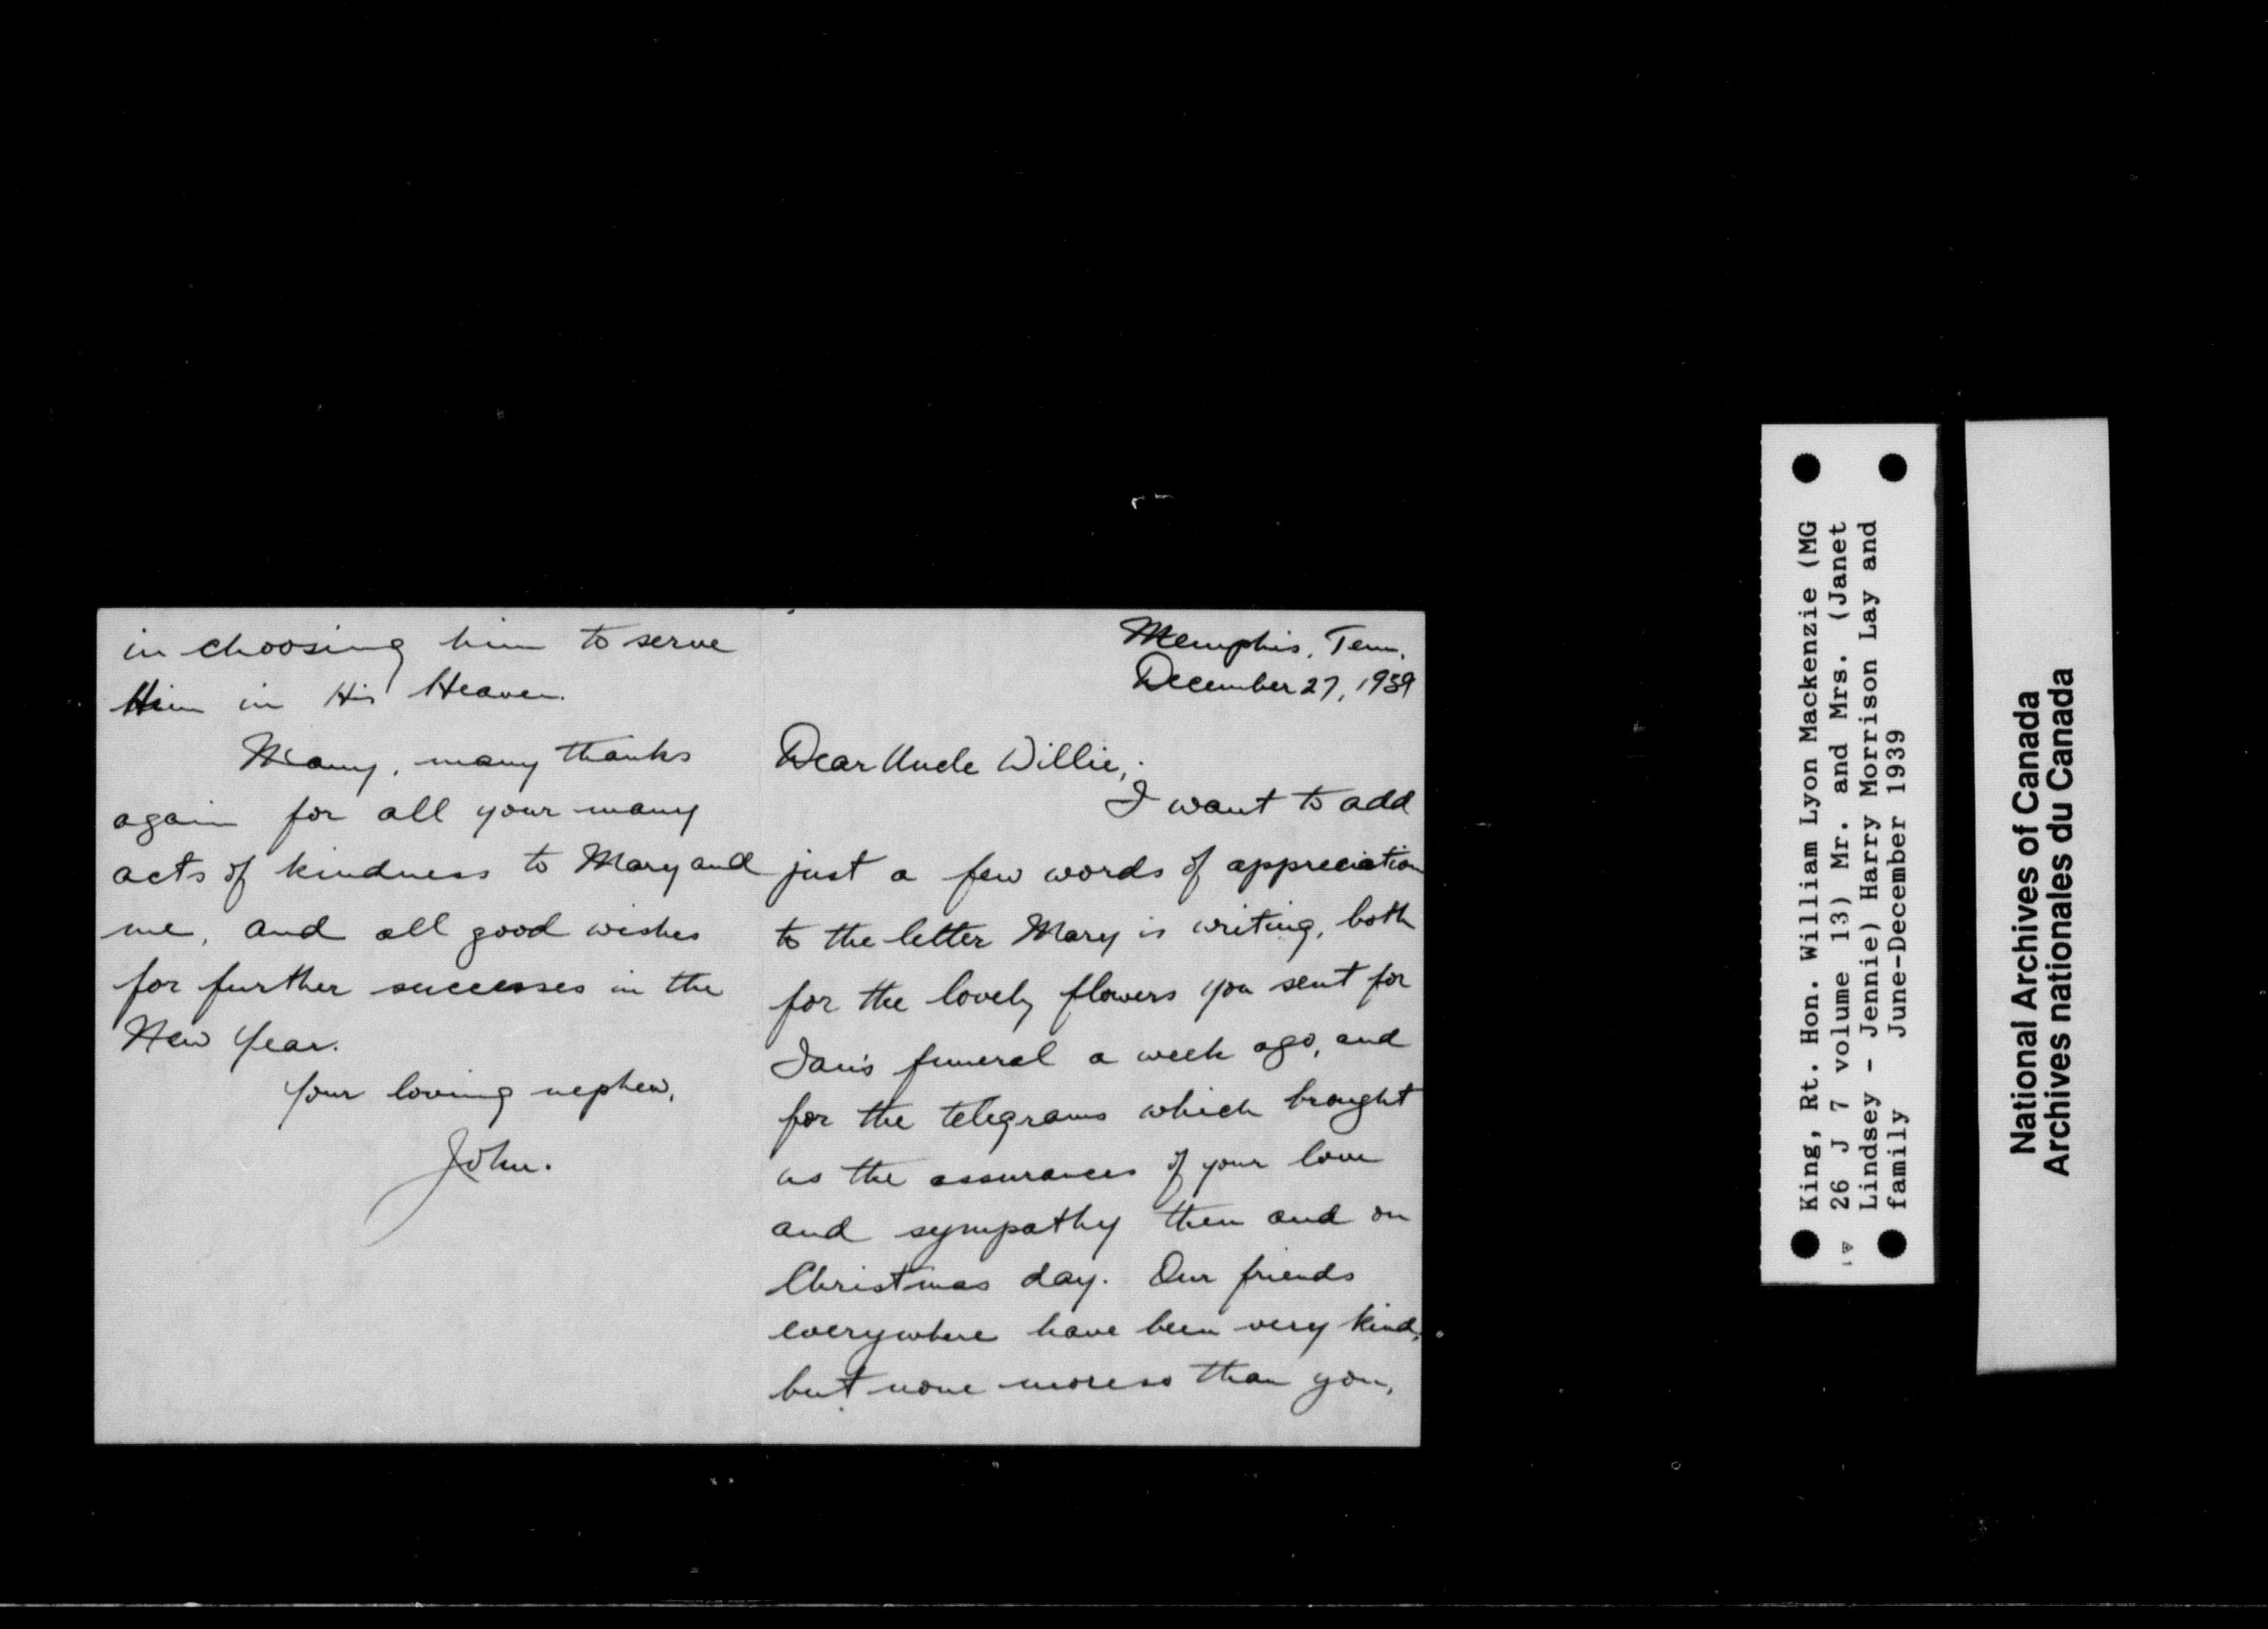 Memphis, Tenn.
December 27, 1939
Dear Uncle Willie,
I want to add
just a few words of appreciation
to the letter Mary is writing, both
for the lovely flowers you sent for
Ian's funeral a week ago, and
for the telegrams which brought
us the assurances of your love
and sympathy then and on
Christmas day. Our friends
everywhere have been very kind,
but none more so than you,
in choosing him to serve
Him in His Heaven.
Many, many thanks
again for all your many
acts of kindness to Mary and
me, and all good wishes
for further successes in the
New Year.
Your loving nephew,
John.
King, Rt. Hon. William Lyon Mackenzie (MG
26 J 7 volume 13) Mr. and Mrs. (Janet
Lindsey - Jennie) Harry Morrison Lay and
family June-December 1939
National Archives of Canada
Archives nationales du Canada